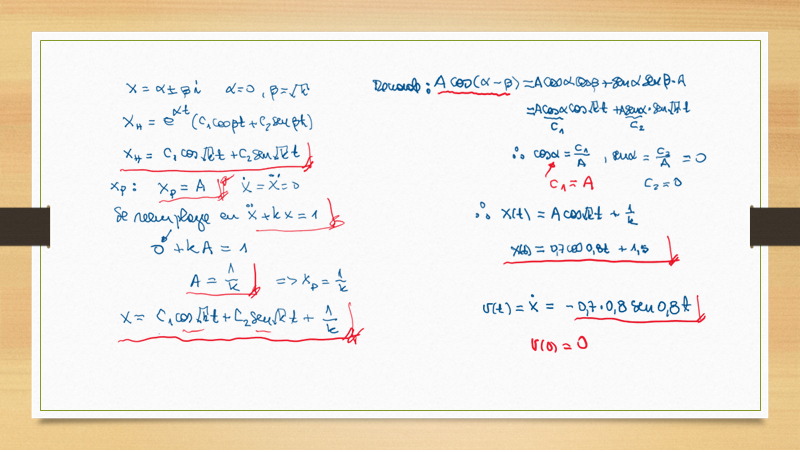 x = α ± β i    α=0 , β=√k
x_H = e^{αt} (C₁cosβt + C₂senβt)
x_H = C₁ cos√k t + C₂ sen√k t
x_p :   x_p = A   ẋ = ẍ = 0
Se reemplaza en ẍ + k x = 1
0 + kA = 1
A = 1/k   => x_p = 1/k
x = C₁cos√k t + C₂ sen√k t + 1/k
: A cos(α-β) = A cosα cosβ + senα senβ · A
= A cosα cos√k t + A senα · sen√k t
C₁   C₂
∴ cosα = C₁/A , senα = C₂/A = 0
C₁ = A   C₂ = 0
∴ x(t) = A cos√k t + 1/k
x(t) = 0,7 cos 0,8t + 1,5
v(t) = ẋ = - 0,7 · 0,8 sen 0,8 t
v(0) = 0